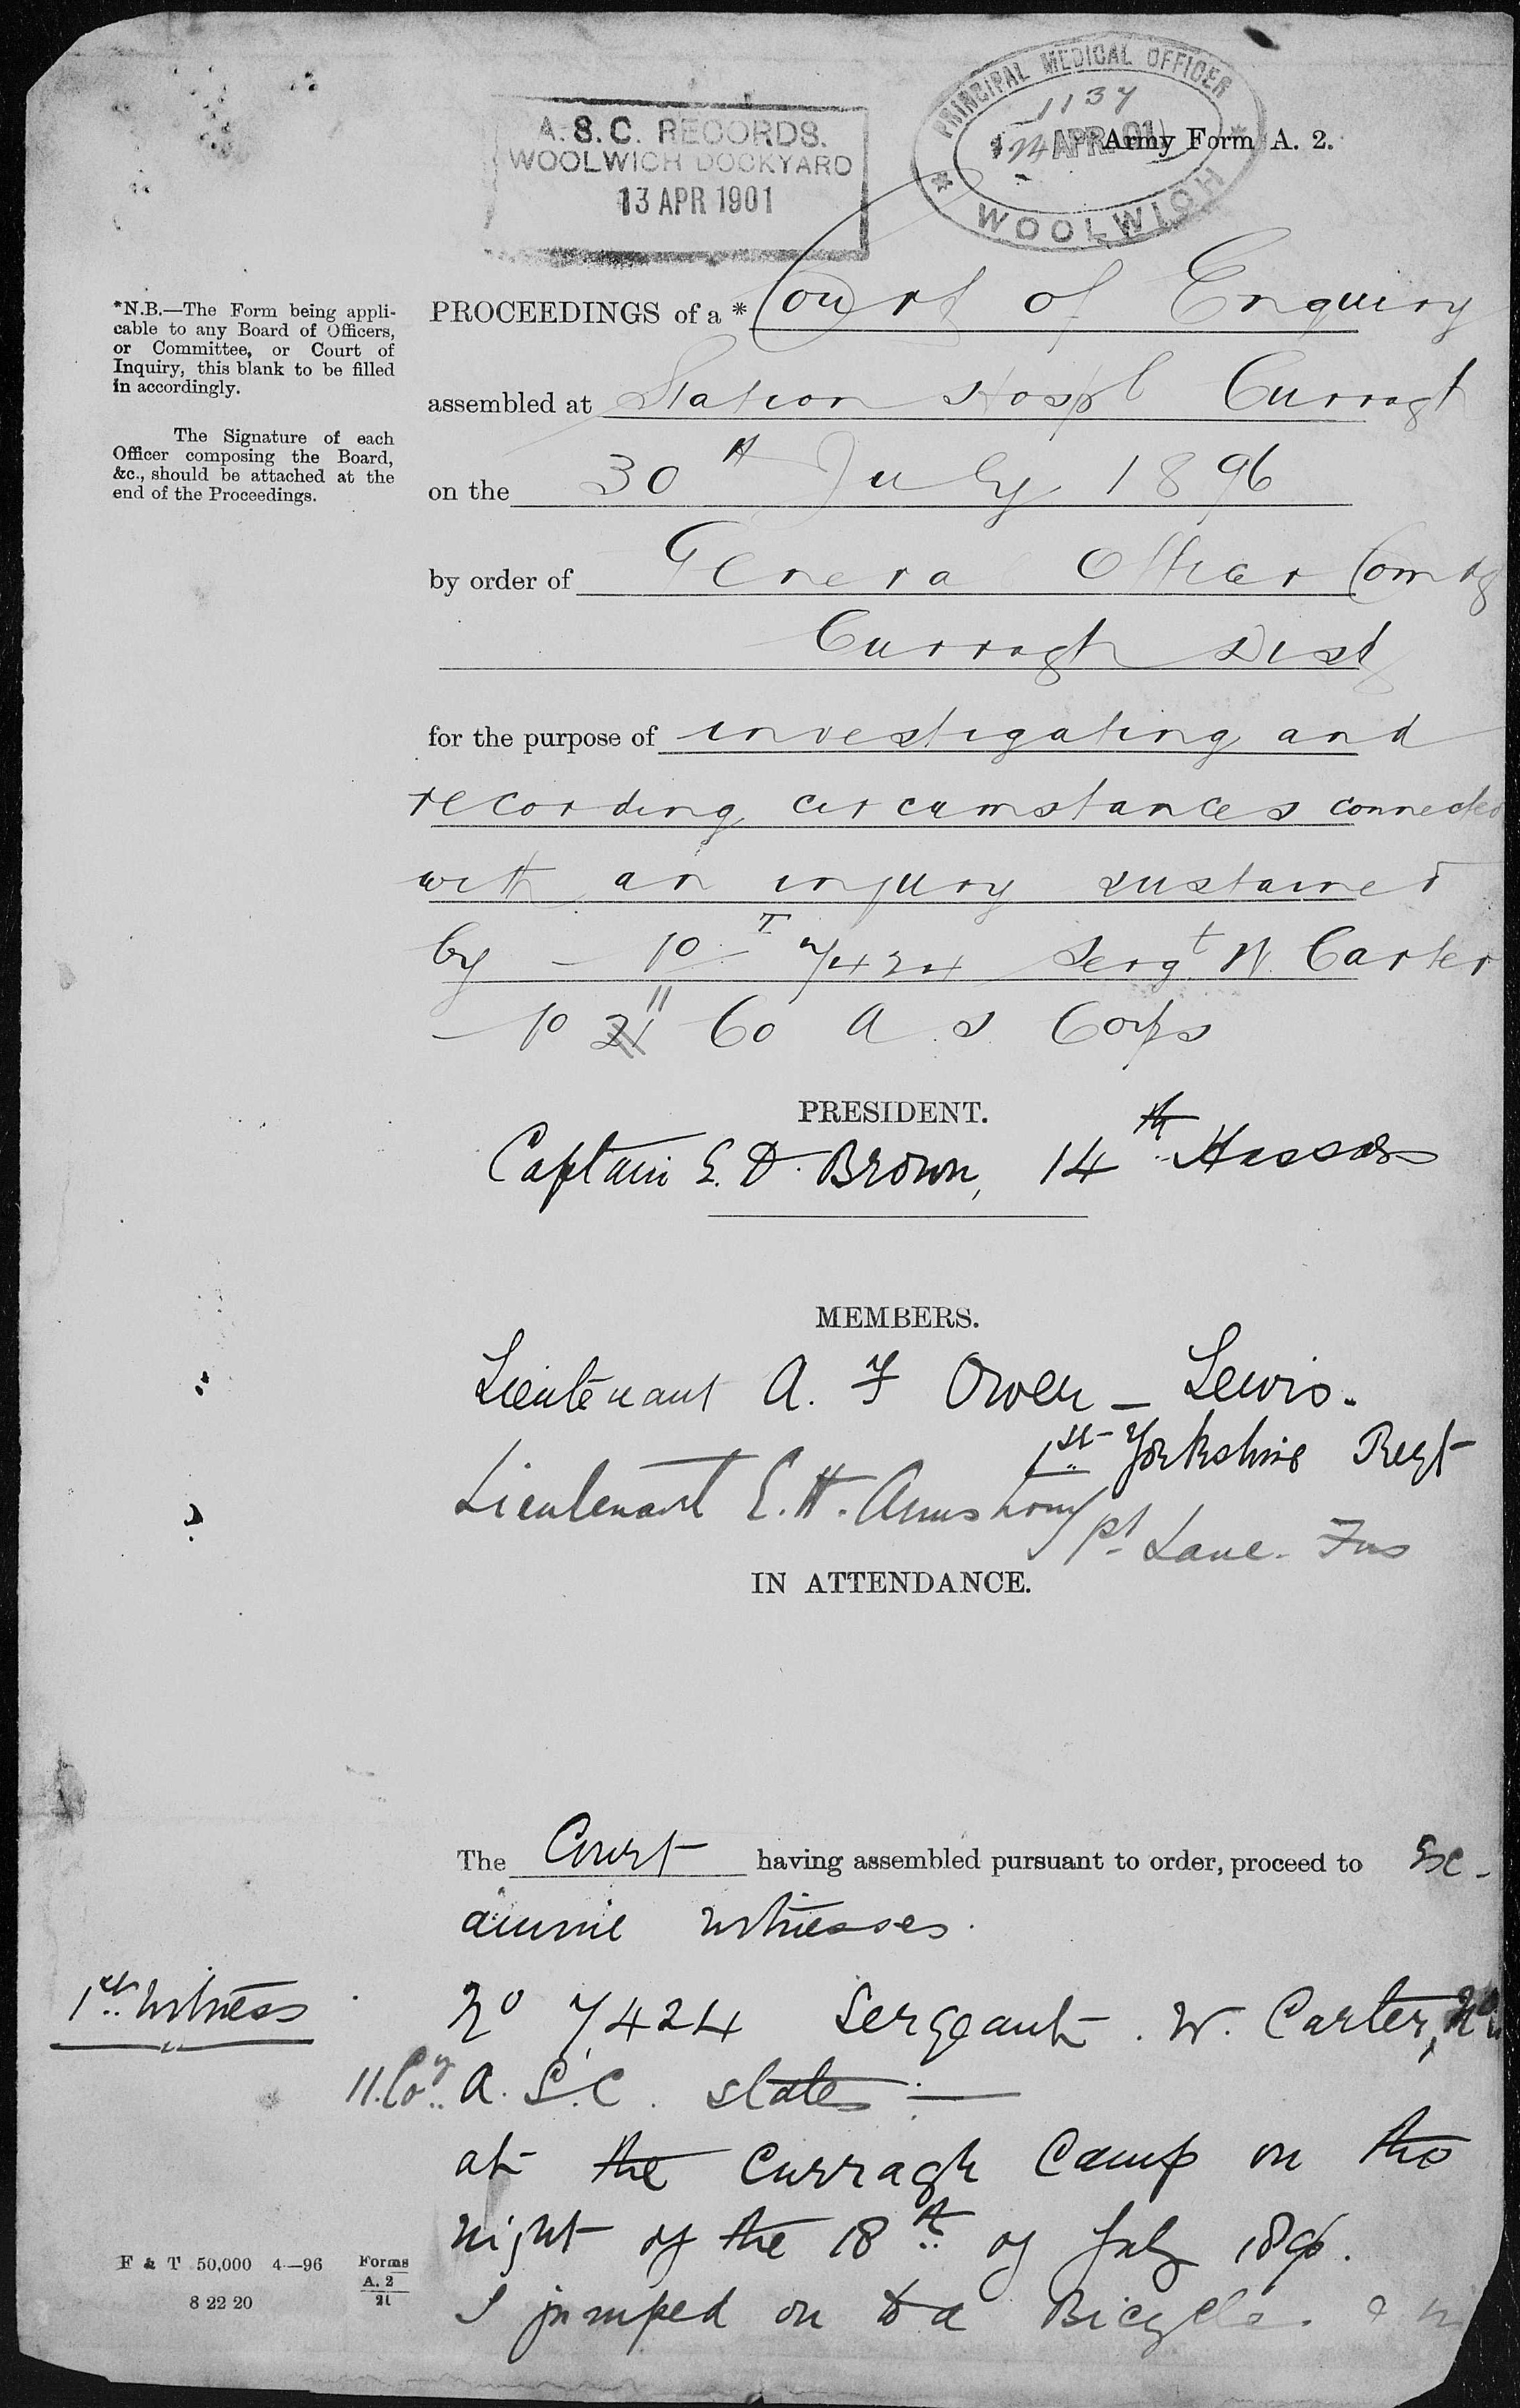 A.S.C. RECORDS.
WOOLWICH DOCKYARD
13 APR 1901
PRINCIPAL MEDICAL OFFICER
1137
APR. 01
WOOLWICH
Army Form A. 2.
*N.B.—The Form being appli-
cable to any Board of Officers,
or Committee, or Court of
Inquiry, this blank to be filled
in accordingly.
The Signature of each
Officer composing the Board,
&c., should be attached at the
end of the Proceedings.
PROCEEDINGS of a * Court of Enquiry
assembled at Station Hospl Curragh
on the 30th July 1896
by order of General Officer Comdg
Curragh Dist
for the purpose of investigating and
recording circumstances connected
with an injury sustained
by - No T/7424 Sergt W. Carter
- No 11 Co A. S. Corps
PRESIDENT.
Captain E. D. Brown, 14th Hussars
MEMBERS.
Lieutenant A. F Owen-Lewis.
1st Yorkshire Regt
Lieutenant E. H. Armstrong
1st Lanc. Fus
IN ATTENDANCE.
The Court having assembled pursuant to order, proceed to Ex-
amine witnesses.
1st Witness
No 7424 Sergeant W. Carter, No
11. Coy. A. S. C. states :—
at the Curragh Camp on the
night of the 18th of July 1896.
I jumped on to a Bicycle. &
F & T 50,000 4—96 Forms
A. 2
21
8 22 20